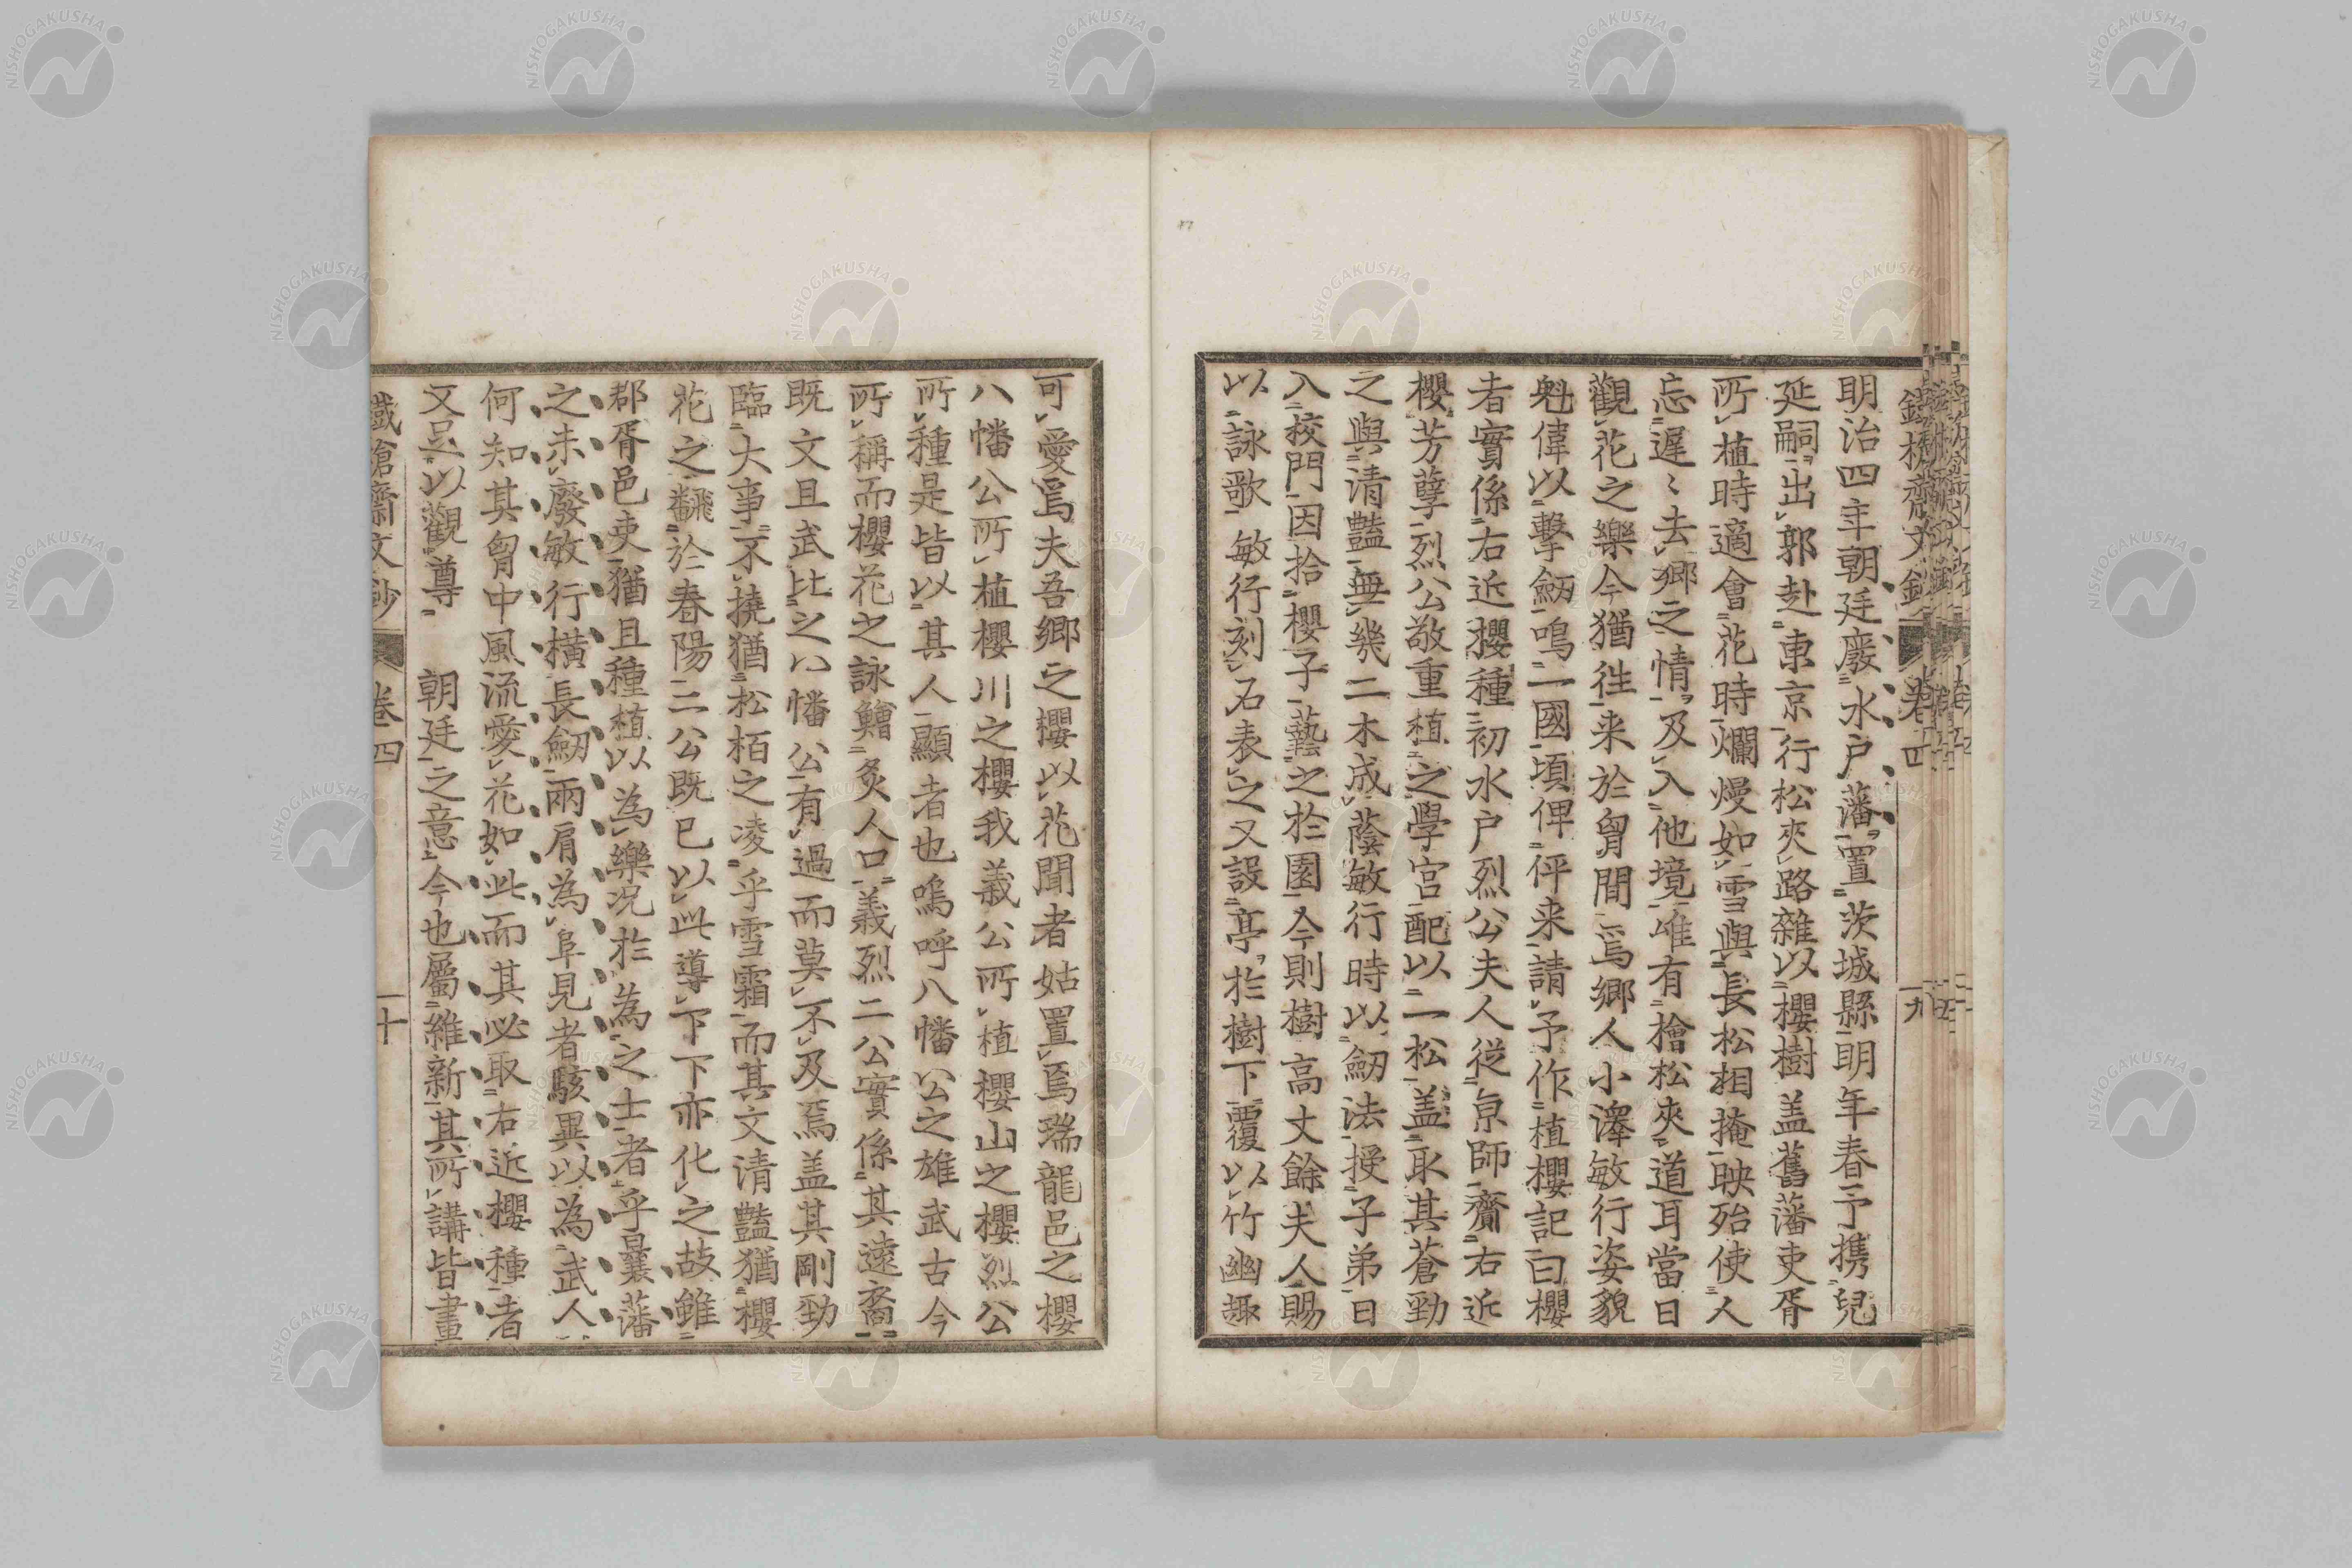 明治四年朝廷廢水戸藩置茨城縣明年春予携兒
延嗣出郭赴東京行松夾路雜以櫻樹盖舊藩吏胥
所植時適會花時爛熳如雪與長松相掩映殆使人
忘遲〻去郷之情及入他境唯有檜松夾道耳當日
觀花之樂今猶往来於胷間焉郷人小澤敏行姿貌
魁偉以擊劒鳴二國頃俾伻来請予作植櫻記曰櫻
者實係右近櫻種初水户烈公夫人從京師齎右近
櫻芳孽烈公敬重植之學宮配以二松盖取其蒼勁
之與清豔無幾二木成蔭敏行時以劒法授子弟日
入校門因拾櫻子藝之於園今則樹高丈餘夫人賜
以詠歌敏行刻石表之又設亭於樹下覆以竹幽趣
可愛焉夫吾郷之櫻以花聞者姑置焉瑞龍邑之櫻
八幡公所植櫻川之櫻我義公所植櫻山之櫻烈公
所種是皆以其人顯者也嗚呼八幡公之雄武古今
所稱而櫻花之詠鱠炙人口義烈二公實係其遠裔
既文且武比之八幡公有過而莫不及焉盖其剛勁
臨大事不撓猶松栢之凌乎雪霜而其文清豔猶櫻
花之飜於春陽二公既已以此導下下亦化之故雖
郡胥邑吏猶且種植以為樂况於為之士者乎曩藩
之未廢敏行橫長劒兩肩為阜見者駭異以為武人
何知其胷中風流愛花如此而其必取右近櫻種者
又足以觀尊　朝廷之意今也屬維新其所講皆畫
鐵槍齋文鈔　卷四　十
卷四　十九
NISHOGAKUSHA